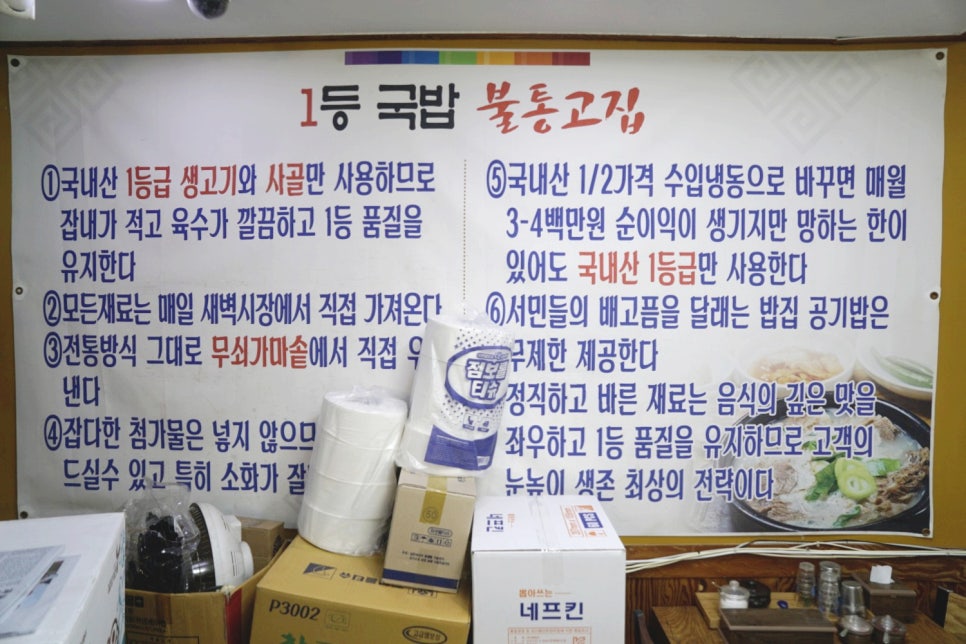 1등 국밥 불통고집
①국내산 1등급 생고기와 사골만 사용하므로
잡내가 적고 육수가 깔끔하고 1등 품질을
유지한다
②모든재료는 매일 새벽시장에서 직접 가져온다
③전통방식 그대로 무쇠가마솥에서 직접 우
낸다
④잡다한 첨가물은 넣지 않으므
드실수 있고 특히 소화가 잘
⑤국내산 1/2가격 수입냉동으로 바꾸면 매월
3-4백만원 순이익이 생기지만 망하는 한이
있어도 국내산 1등급만 사용한다
⑥서민들의 배고픔을 달래는 밥집 공기밥은
무제한 제공한다
정직하고 바른 재료는 음식의 깊은 맛을
좌우하고 1등 품질을 유지하므로 고객의
눈높이 생존 최상의 전략이다
점보롤
티슈
50
P3002
네프킨
뽑아쓰는
네프킨